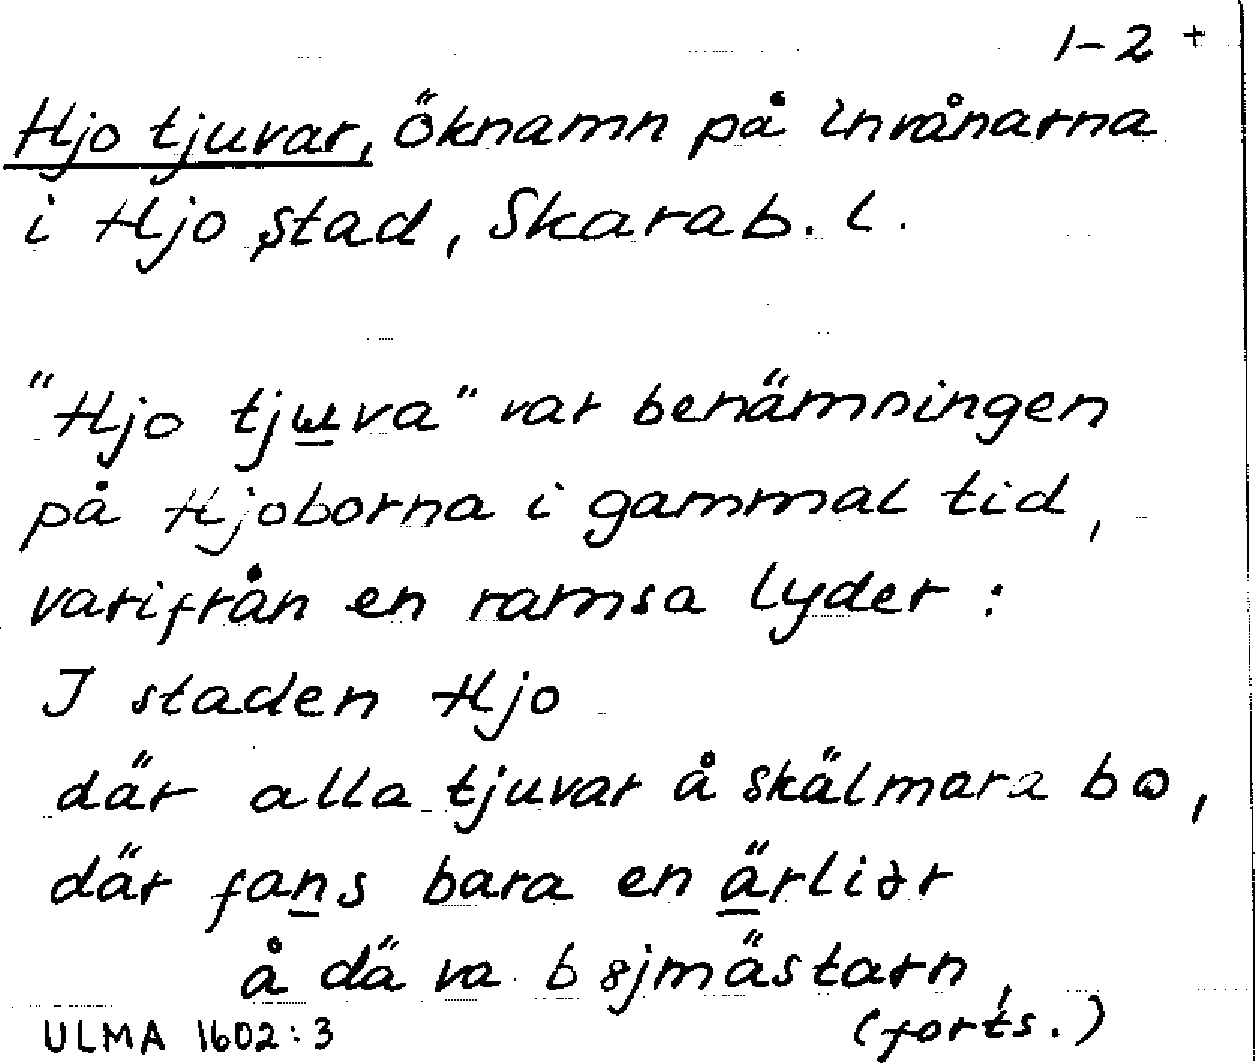 1-2 +
Hjo tjuvar, öknamn på invånarna
i Hjo stad, Skarab. l.
"Hjo tjuva" var benämningen
på Hjoborna i gammal tid,
varifrån en ramsa lyder:
I staden Hjo
där alla tjuvar å skälmara bω,
där fans bara en ärliər
å dä va bȣjmästarn,
ULMA 1602:3 (forts.)